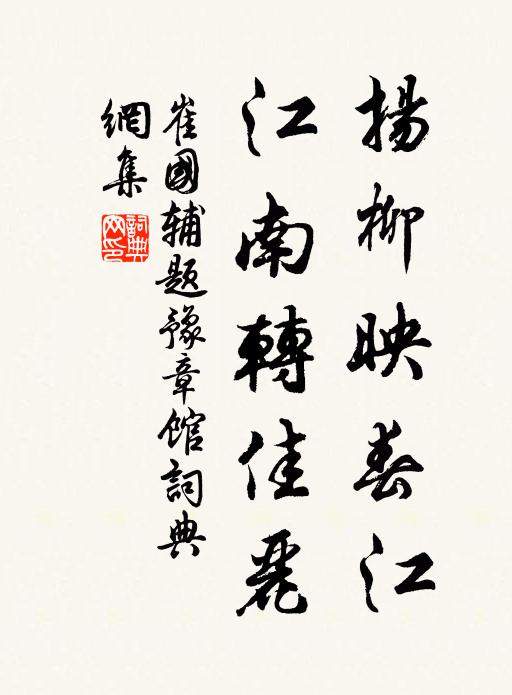 揚柳映春江
江南轉佳麗
崔國輔題豫章館詞典
網集
詞典網印